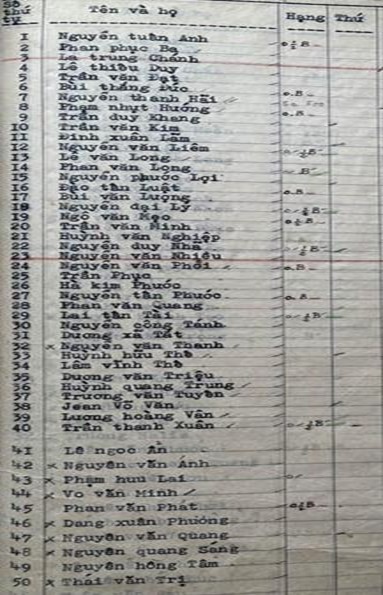 Số thứ tự Tên và họ Hạng Thứ
1 Nguyễn tuấn Anh
2 Phan phục Ba o ½ B
3 La trung Chánh
4 Lê thiều Duy
5 Trần văn Đạt o.B
6 Bùi thăng Đức
7 Nguyễn thanh Hải o.B
8 Phạm nhựt Hướng
9 Trần duy Khang o.B
10 Trần văn Kim
11 Đinh xuân Lâm
12 Nguyễn văn Liêm o ½B
13 Lê văn Long
14 Phan văn Long B
15 Nguyễn phước Lợi
16 Đào tân Luật
17 Bùi văn Lượng o.B
18 Nguyễn đại Lý
19 Ngô văn Mẹo o ½B
20 Trần văn Minh o½B
21 Huỳnh văn Nghiệp
22 Nguyễn duy Nhã o ½B
23 Nguyễn văn Nhiều
24 Nguyễn văn Phôi o.B
25 Trần Phục
26 Hà kim Phước
27 Nguyễn tấn Phước o.B
28 Phan văn Quang
29 Lai tấn Tài o ½B
30 Nguyễn công Tánh
31 Dương xã Tất
32 x Nguyễn văn Thanh
33 Huỳnh hữu Thờ
34 Lâm vĩnh Thờ
35 Dương văn Triệu
36 Huỳnh quang Trung
37 Trương văn Tuyền
38 Jean Võ Văn
39 Lương hoàng Vân
40 Trần thanh Xuân o ½B
41 Lê ngọc Ẩn
42 x Nguyễn văn Ánh
43 x Phạm hưu Lai
44 x Vo văn Minh
45 Phan văn Phát o½B
46 x Dang xuân Phương
47 x Nguyễn văn Quang
48 x Nguyễn quang Sáng
49 Nguyễn hồng Tâm
50 x Thái văn Trị